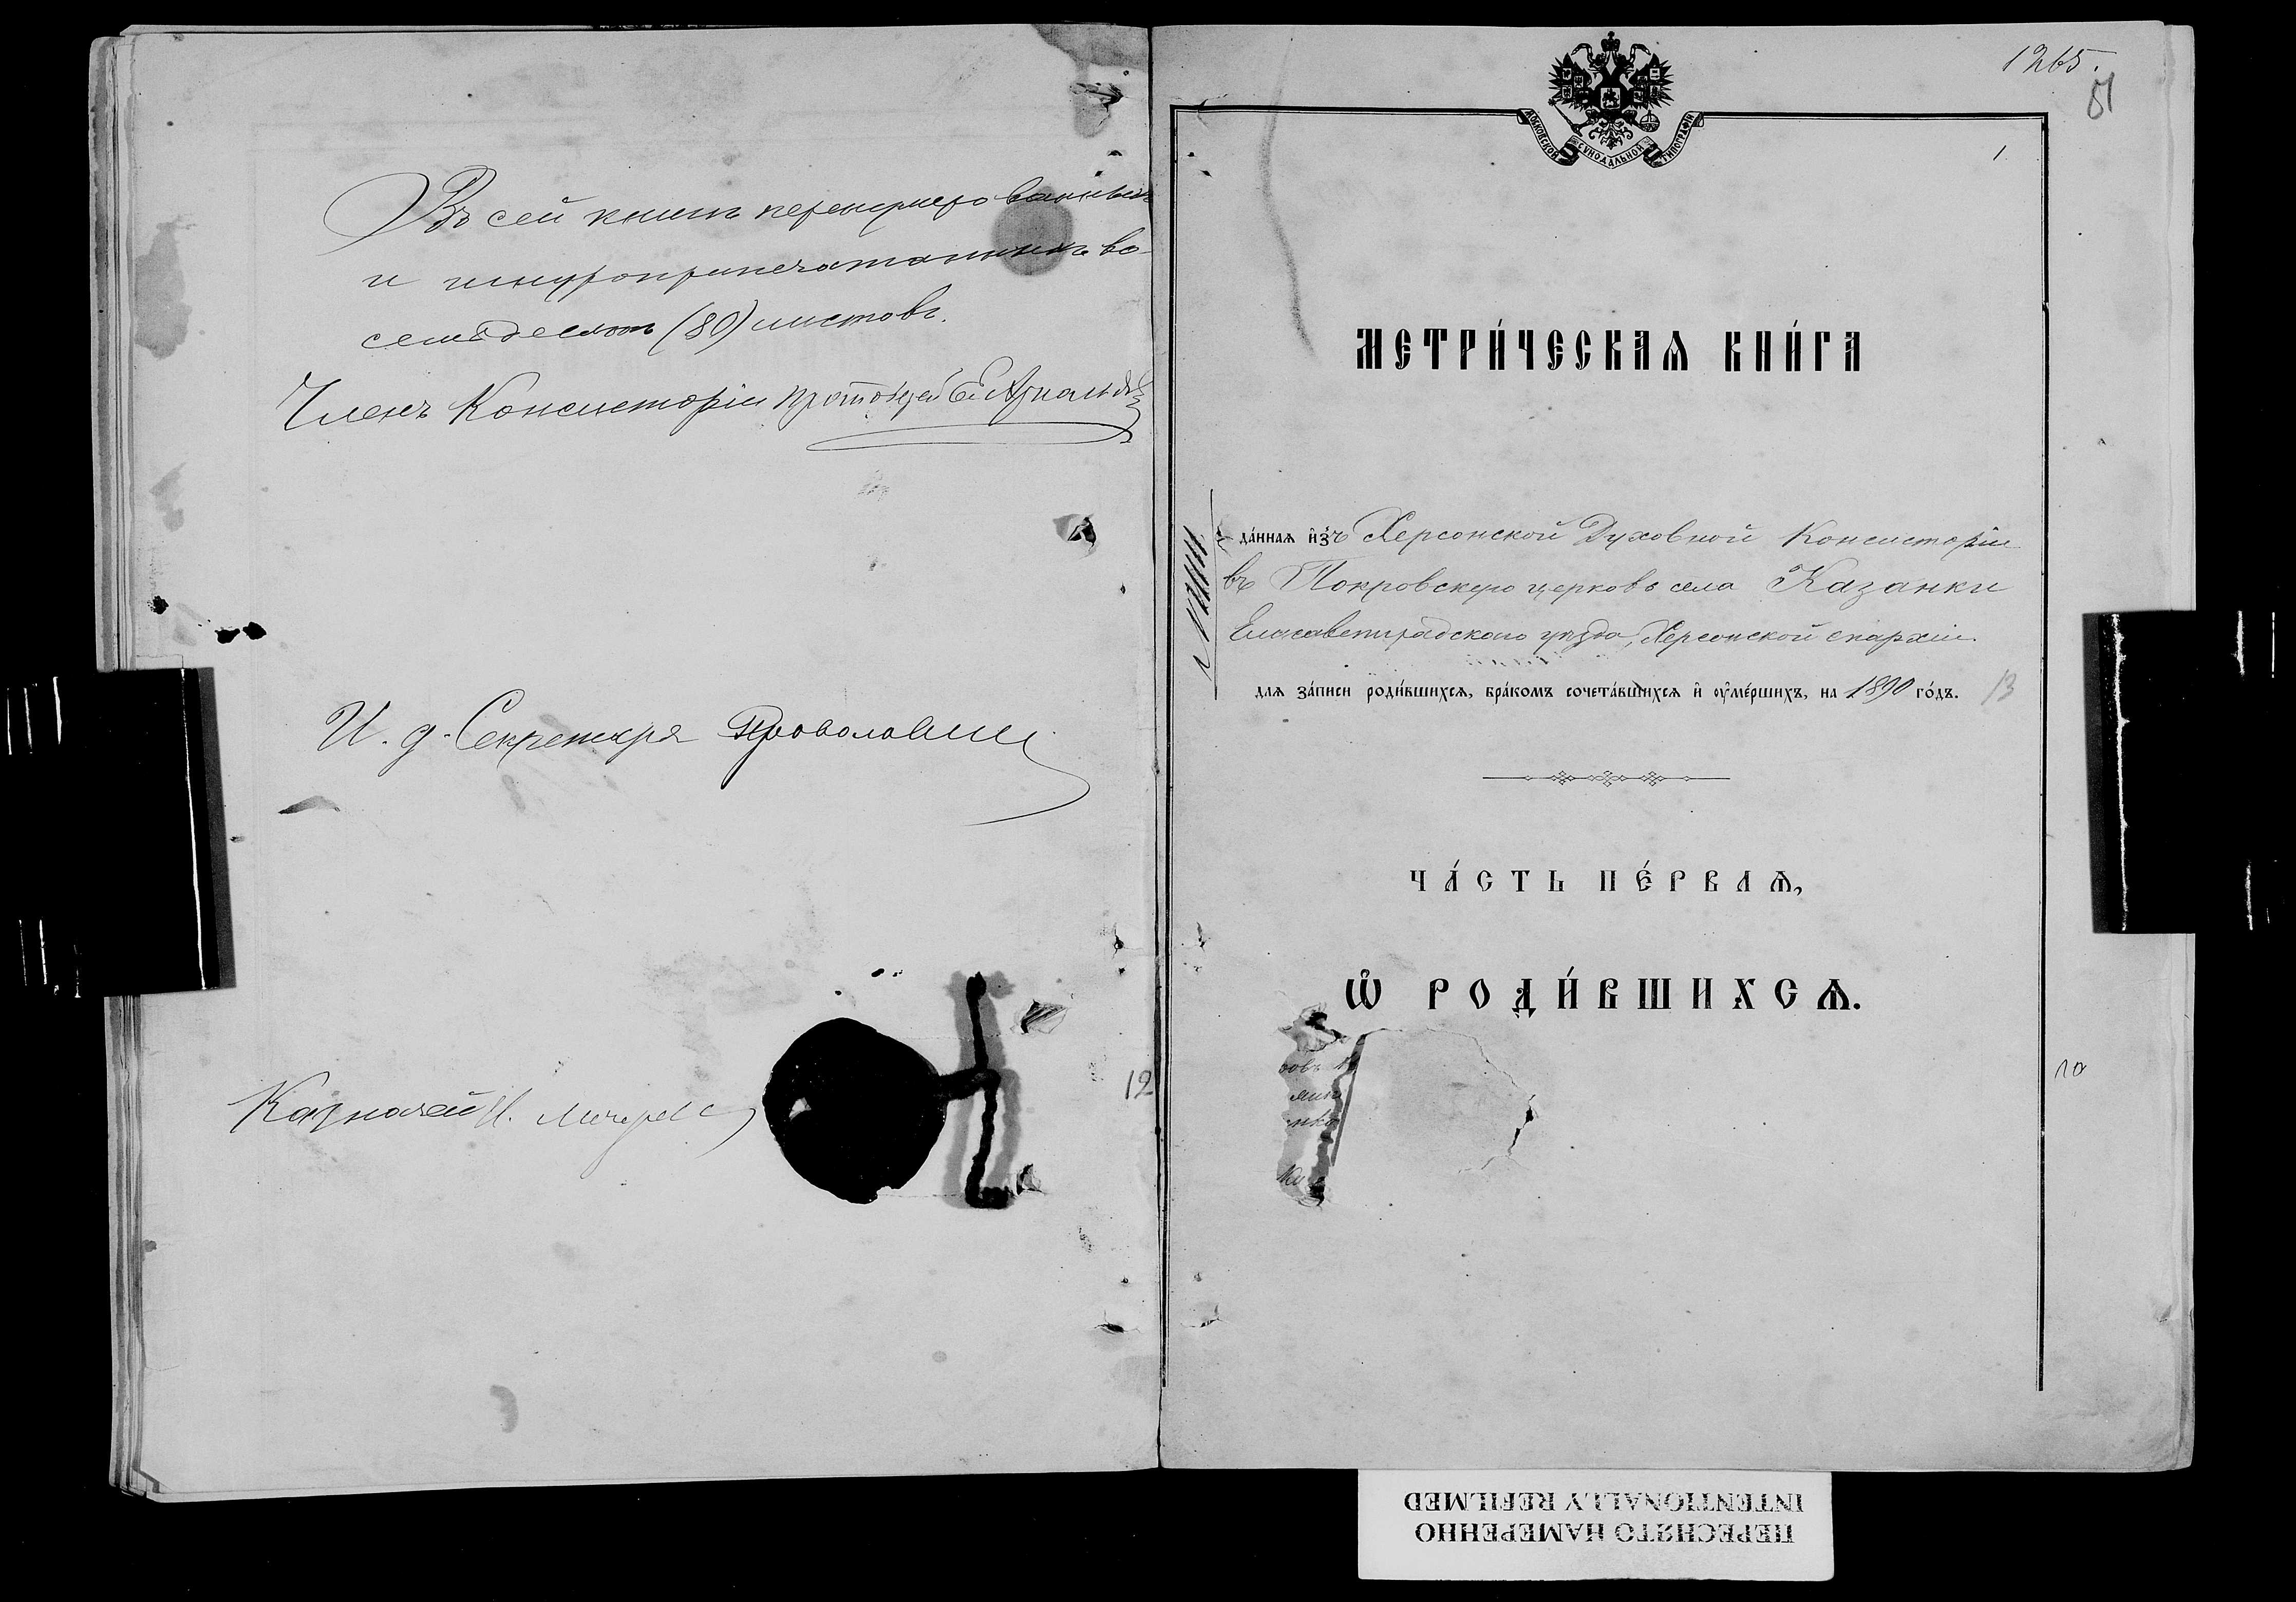 Въ сей книгѣ перенумерованныхъ
и шнуроприпечатанныхъ во-
семьдесятъ (80) листовъ.
Членъ Консисторіи протоіерей
И. д. Секретаря
Казначей
12
1265.
51
МОСКОВСКОЙ СѴНОДАЛЬНОЙ ТИПОГРАФІИ
1
МЕТРИ́ЧЕСКАѦ КНИ́ГА
да́ннаѧ и҆зъ Херсонской Духовной Консисторіи
въ Покровскую церковь села Казанки
Елисаветградскаго уѣзда, Херсонской епархіи.
длѧ за́писи роди́вшихсѧ, бра́комъ сочета́вшихсѧ и҆ ᲂу҆ме́ршихъ, на 1890 го́дъ. 13
ЧА́СТЬ ПЕ́РВАѦ,
Ѡ҆ РОДИ́ВШИХСѦ.
ПЕРЕСНЯТО НАМЕРЕННО
INTENTIONALLY REFILMED